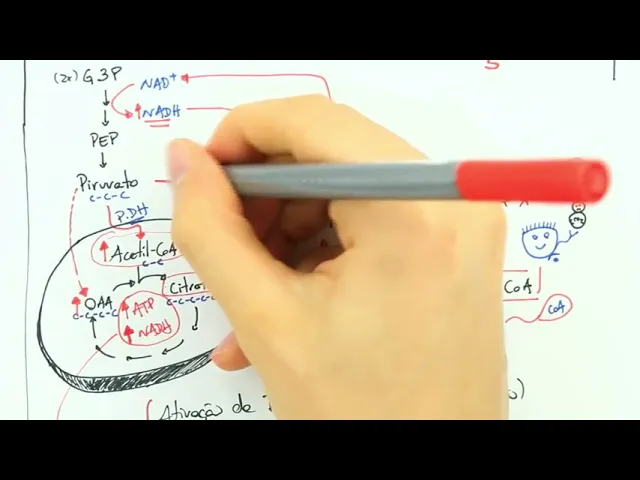 (2x) G3P
NAD⁺
NADH
PEP
Piruvato
C-C-C
P.DH
Acetil-CoA
C-C
OAA
C-C-C-C
ATP
NADH
CoA
CoA
(Ativação de